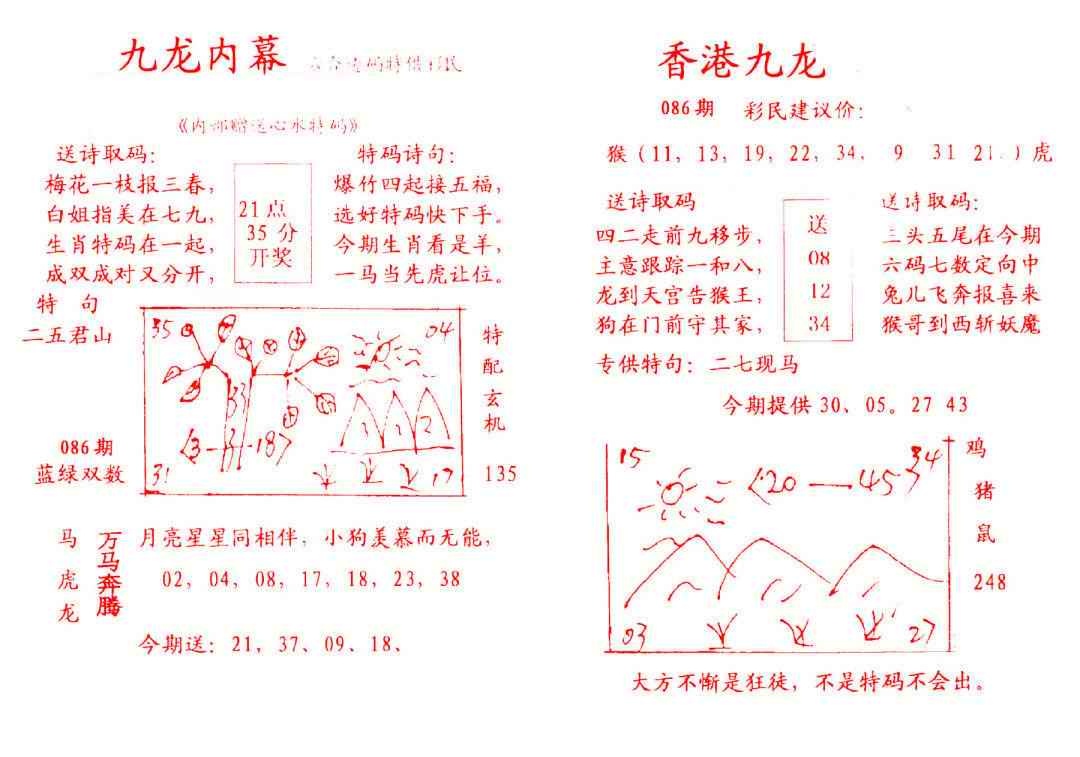 九龙内幕
《内部赠送心水特码》
送诗取码：
梅花一枝报三春，
白姐指美在七九，
生肖特码在一起，
成双成对又分开，
21点
35分
开奖
特码诗句：
爆竹四起接五福，
选好特码快下手。
今期生肖看是羊，
一马当先虎让位。
特 句
二五君山
086期
蓝绿双数
35
04
33
3 1 2
<3-H-18>
31
17
特配玄机
135
马虎龙
万马奔腾
月亮星星同相伴，小狗羡慕而无能，
02，04，08，17，18，23，38
今期送：21，37、09、18、
香港九龙
086期 彩民建议价：
猴（11，13，19，22，34， 9 31 21.）虎
送诗取码
四二走前九移步，
主意跟踪一和八，
龙到天宫告猴王，
狗在门前守其家，
送
08
12
34
送诗取码：
三头五尾在今期
六码七数定向中
兔儿飞奔报喜来
猴哥到西斩妖魔
专供特句：二七现马
今期提供30、05。27 43
15
34
<20—45>
03
27
鸡
猪
鼠
248
大方不惭是狂徒，不是特码不会出。